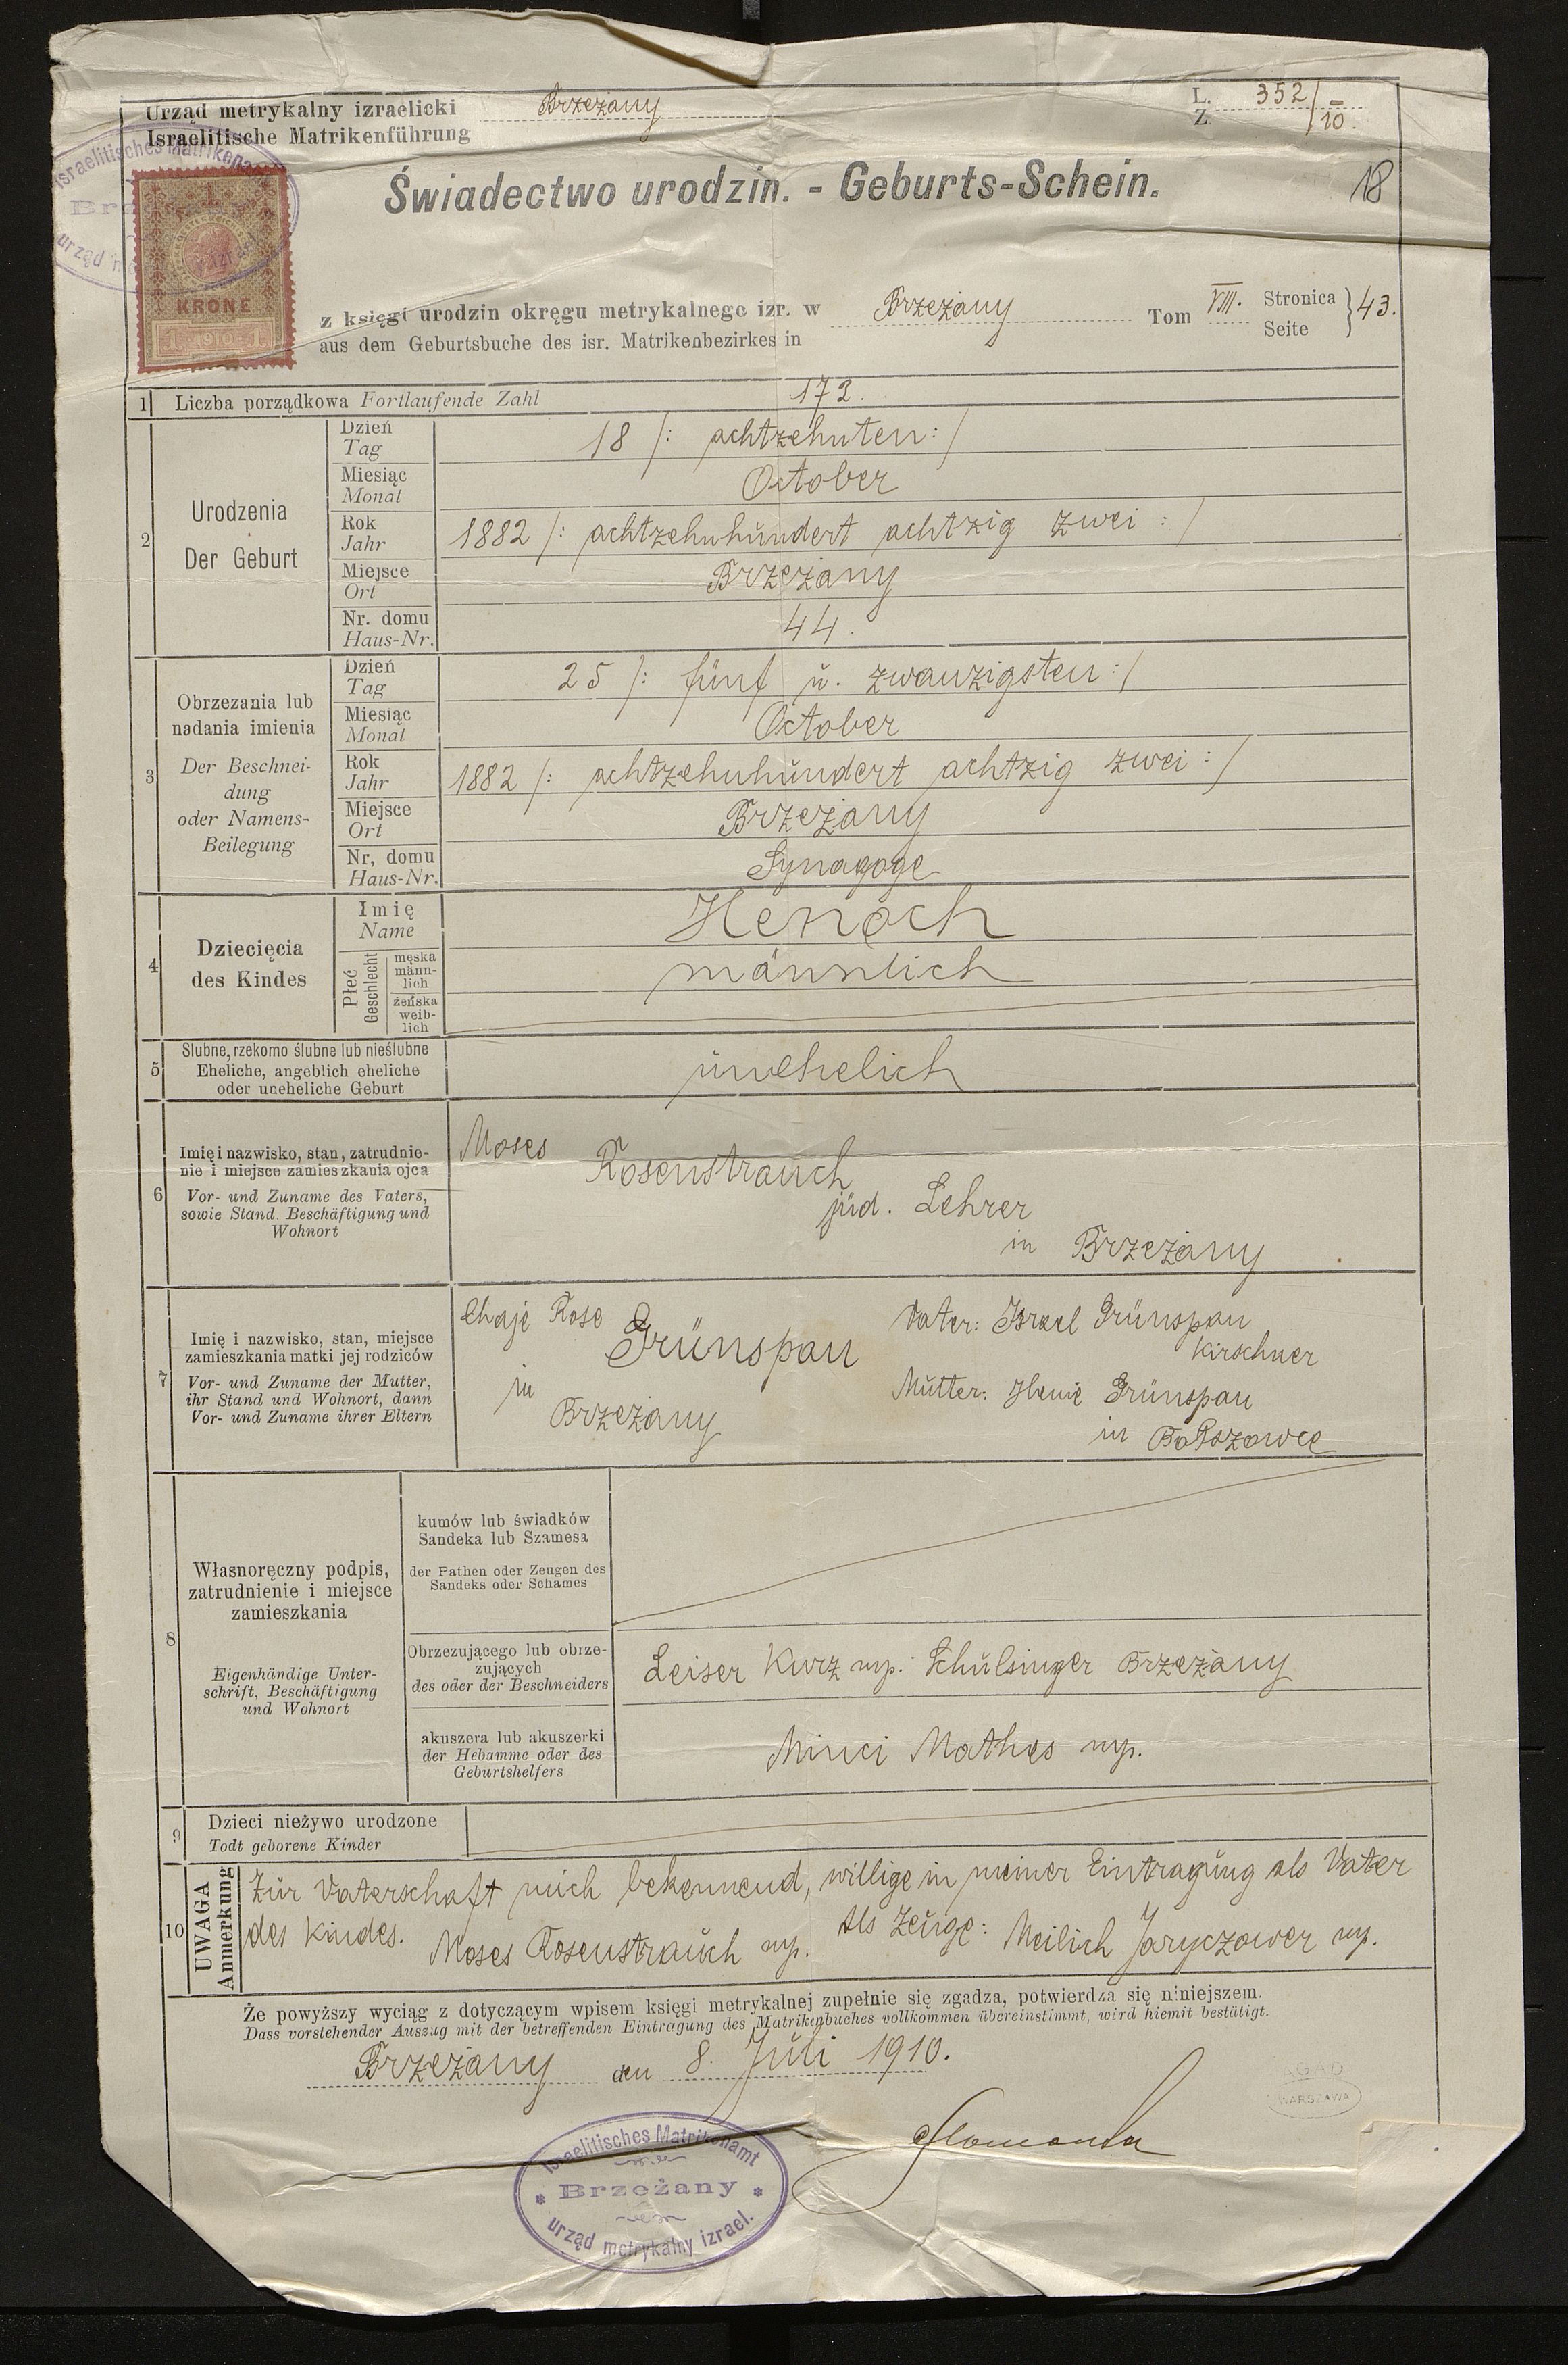 Urząd metrykalny izraelicki Brzeżany
Israelitische Matrikenführung
L. 352/10.
Z.
18
Israelitisches Matrikenamt
1
KRONE
1910
Świadectwo urodzin. - Geburts-Schein.
z księgi urodzin okręgu metrykalnego izr. w Brzeżany Tom VIII. Stronica } 43.
aus dem Geburtsbuche des isr. Matrikenbezirkes in Seite
1 Liczba porządkowa Fortlaufende Zahl 172.
2 Urodzenia
Der Geburt
Dzień
Tag 18 /: achtzehnten :/
Miesiąc
Monat October
Rok
Jahr 1882 /: achtzehnhundert achtzig zwei :/
Miejsce
Ort Brzeżany
Nr. domu
Haus-Nr. 44.
3 Obrzezania lub
nadania imienia
Der Beschnei-
dung
oder Namens-
Beilegung
Dzień
Tag 25 /: fünf u. zwanzigsten :/
Miesiąc
Monat October
Rok
Jahr 1882 /: achtzehnhundert achtzig zwei :/
Miejsce
Ort Brzeżany
Nr, domu
Haus-Nr. Synagoge
4 Dziecięcia
des Kindes
Imię
Name Henoch
Płeć
Geschlecht
męska
männ-
lich männlich
żeńska
weib-
lich
5 Ślubne, rzekomo ślubne lub nieślubne
Eheliche, angeblich eheliche
oder uneheliche Geburt unehelich
6 Imię i nazwisko, stan, zatrudnie-
nie i miejsce zamieszkania ojca
Vor- und Zuname des Vaters,
sowie Stand. Beschäftigung und
Wohnort
Moses Rosenstrauch
jüd. Lehrer
in Brzeżany
7 Imię i nazwisko, stan, miejsce
zamieszkania matki jej rodziców
Vor- und Zuname der Mutter,
ihr Stand und Wohnort, dann
Vor- und Zuname ihrer Eltern
Chaje Rose Grünspan
in
Brzeżany
Vater: Israel Grünspan
Kirschner
Mutter: Henie Grünspan
in Bołszowce
8 Własnoręczny podpis,
zatrudnienie i miejsce
zamieszkania
Eigenhändige Unter-
schrift, Beschäftigung
und Wohnort
kumów lub świadków
Sandeka lub Szamesa
der Pathen oder Zeugen des
Sandeks oder Schames
Obrzezującego lub obrze-
zujących
des oder der Beschneiders
Leiser Kurz mp. Schulsinger Brzeżany
akuszera lub akuszerki
der Hebamme oder des
Geburtshelfers
Minci Mathes mp.
9 Dzieci nieżywo urodzone
Todt geborene Kinder
10 UWAGA
Anmerkung
Zur Vaterschaft mich bekennend, willige in meiner Eintragung als Vater
des Kindes. Moses Rosenstrauch mp. Als Zeuge: Meilich Jaryczower mp.
Że powyższy wyciąg z dotyczącym wpisem księgi metrykalnej zupełnie się zgadza, potwierdza się niniejszem.
Dass vorstehender Auszug mit der betreffenden Eintragung des Matrikenbuches vollkommen übereinstimmt, wird hiemit bestätigt.
Brzeżany den 8. Juli 1910.
AGAD
WARSZAWA
Israelitisches Matrikenamt
Brzeżany
urząd metrykalny izrael.